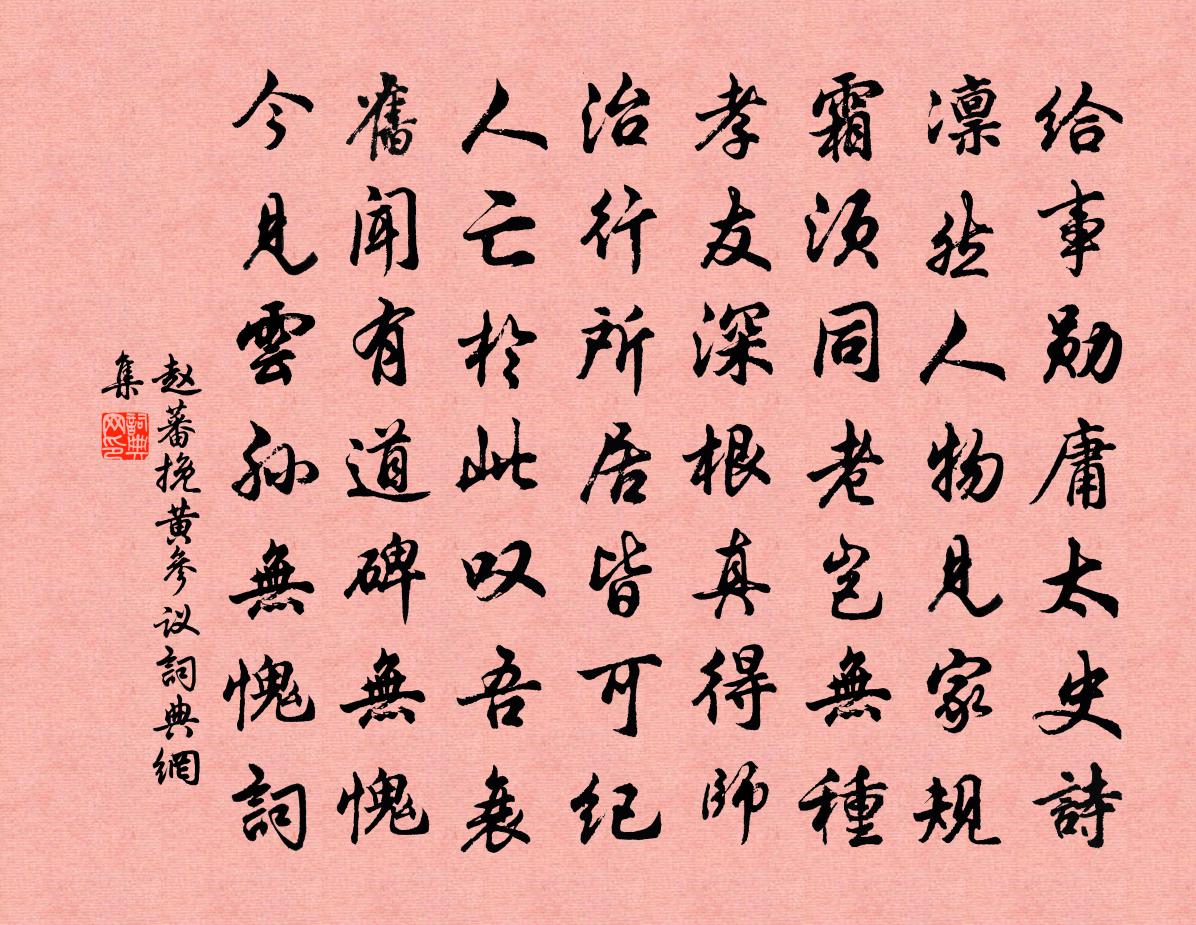 給事勛庸太史詩
凛然人物見家規
霜須同老豈無種
孝友深根真得師
治行所居皆可紀
人亡於此叹吾衰
舊聞有道碑無愧
今見雲孫無愧詞
赵蕃挽黄參议詞典網
集
詞典
网印